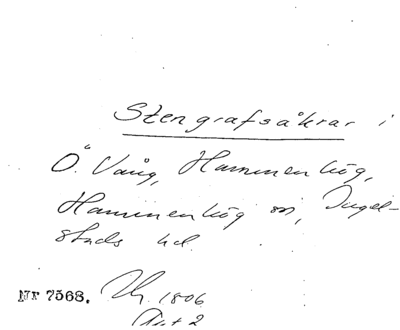 Stengrafsåkrar i
Ö. Vång, Hammenhög,
Hammenhög sn, Ingel-
stads hd.
Nr 7568. 1806
Akt 2